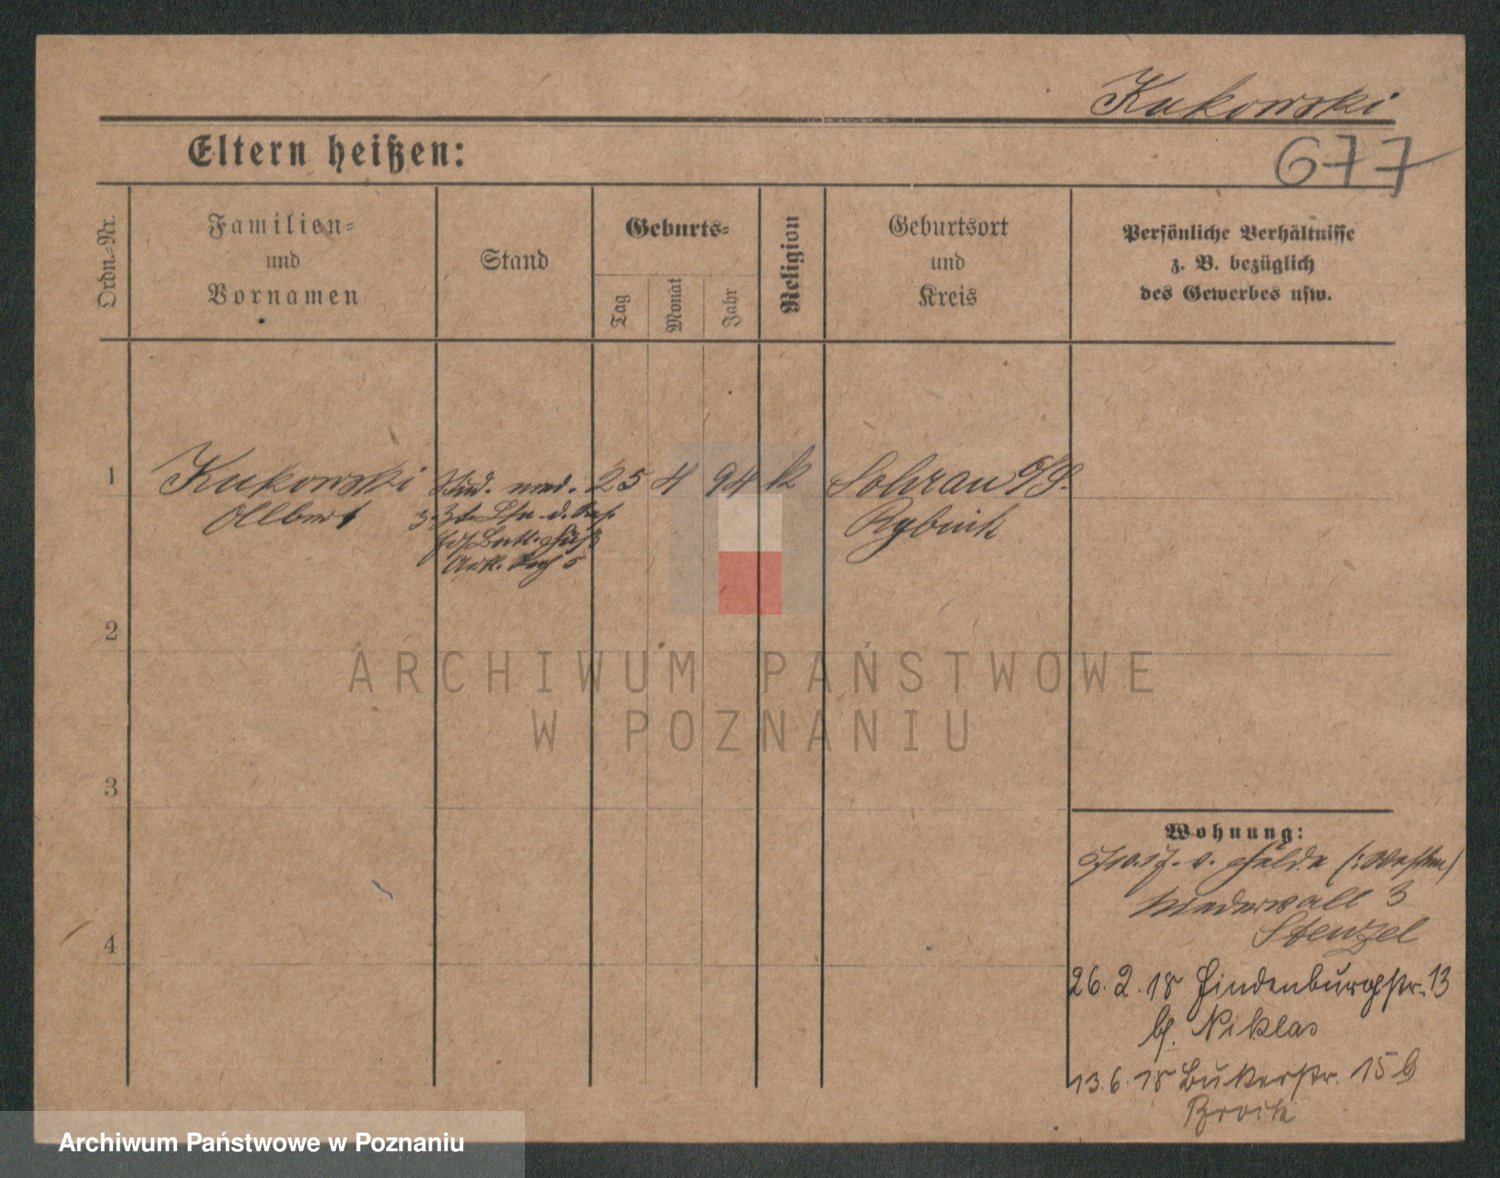 Kukowski
677
Eltern heißen:
Ordn.-Nr.
Familien-
und
Vornamen
Stand
Geburts-
Tag
Monat
Jahr
Religion
Geburtsort
und
Kreis
Persönliche Verhältnisse
z. B. bezüglich
des Gewerbes usw.
1
Kukowski
Albert
Stud. med.
z. Zt. Ltn. d. Res.
25
4
94
k
Sohrau O/S.
Rybnik
2
3
4
Wohnung:
Niederwall 3
Stenzel
26. 2. 18 Hindenburgstr. 13
b. Niklas
13. 6. 18 Bukerstr. 15 b
ARCHIWUM PAŃSTWOWE
W POZNANIU
Archiwum Państwowe w Poznaniu